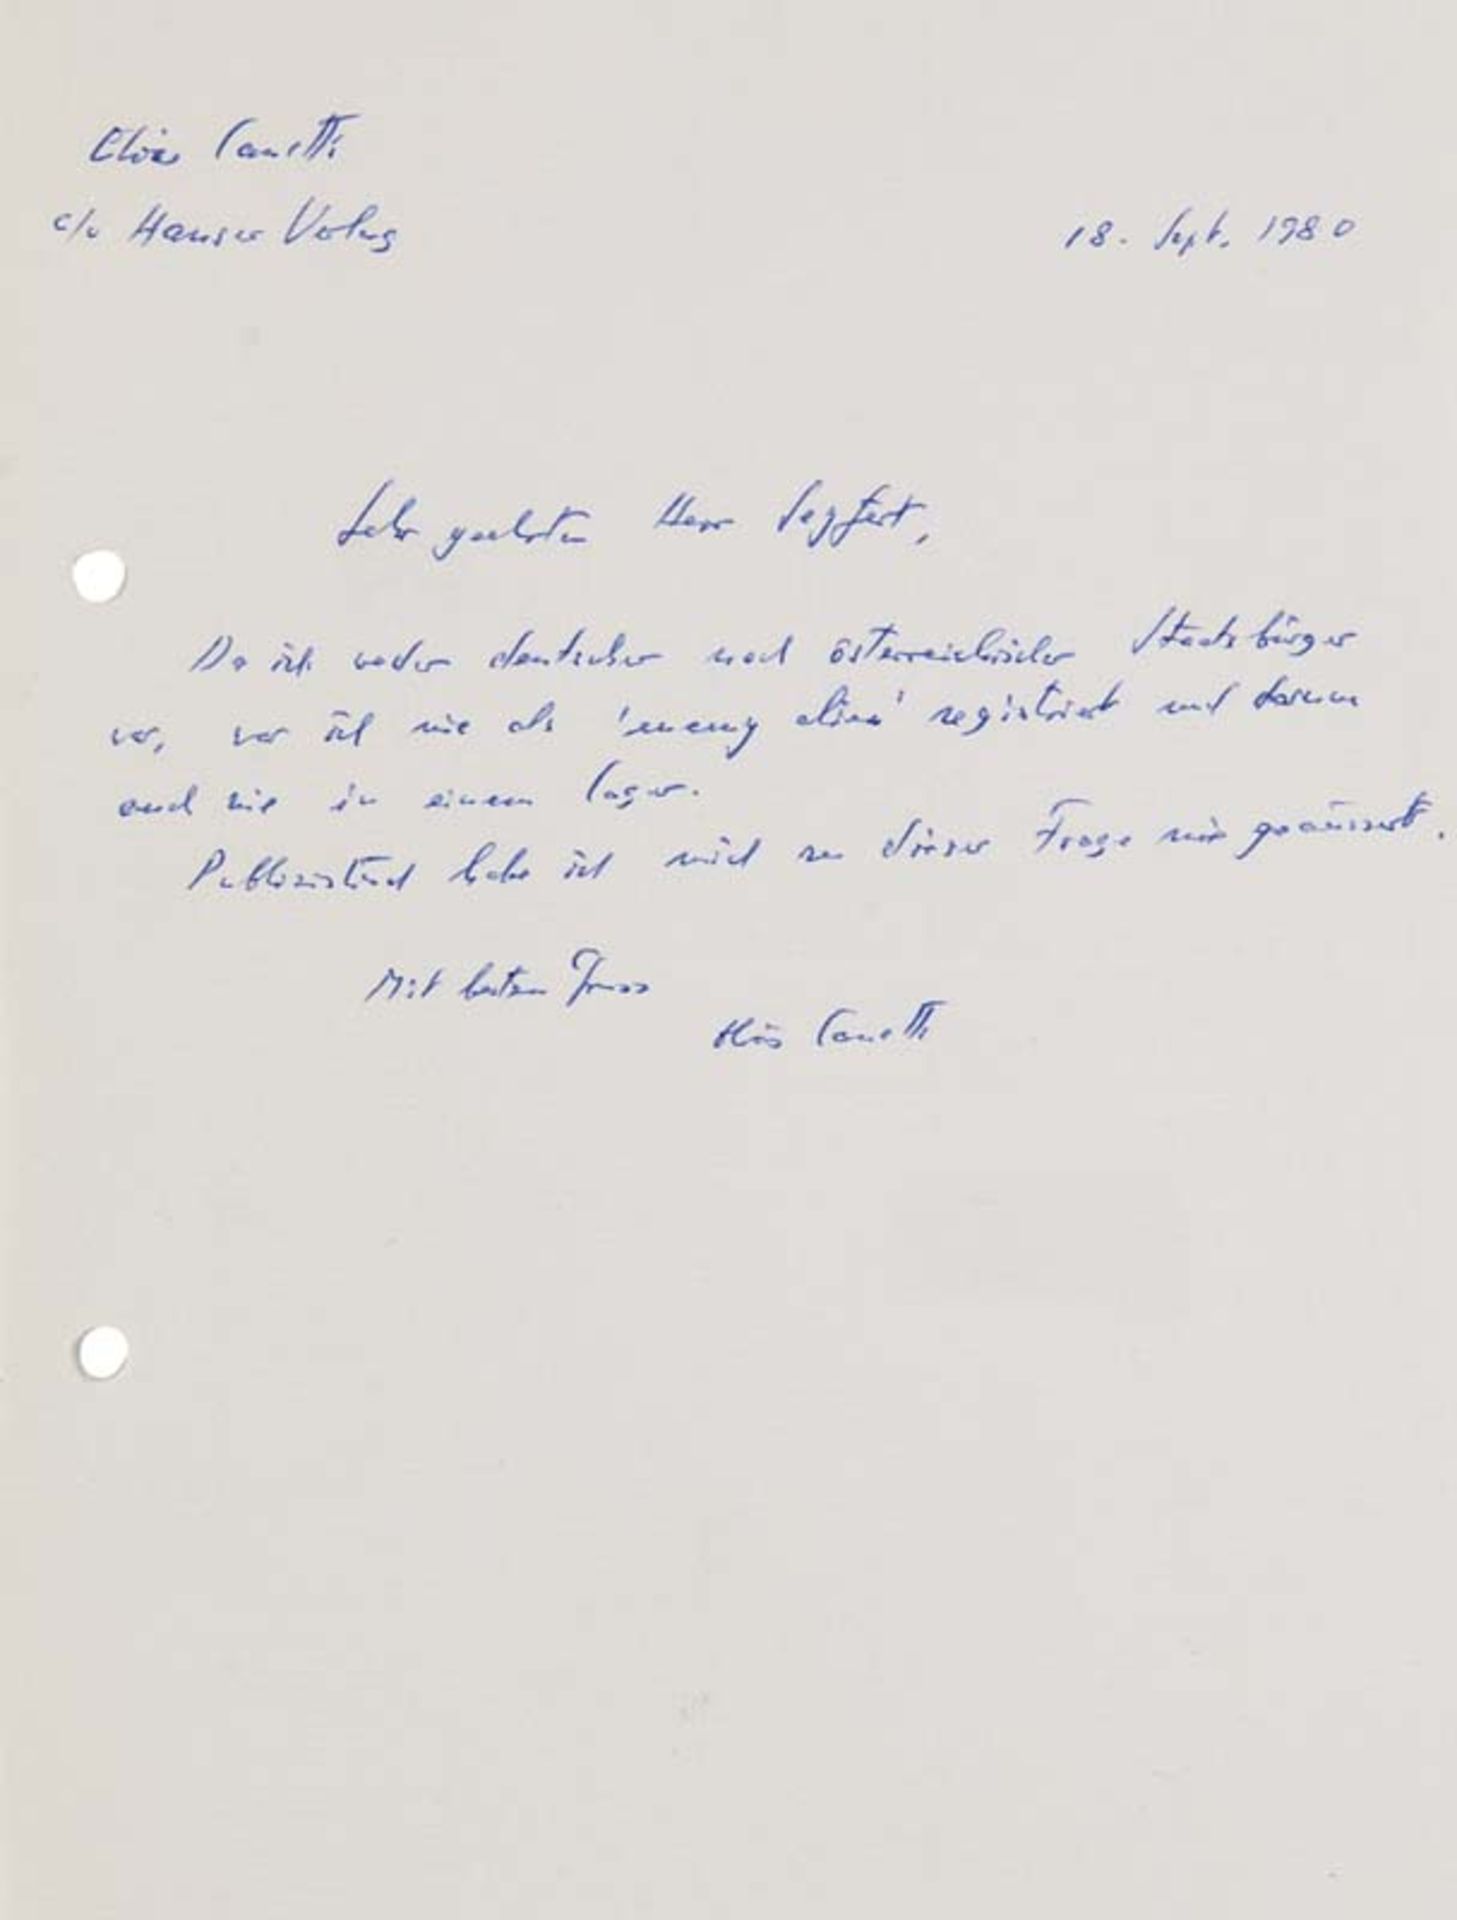 Elias Canetti
c/o Hanser Verlag
18. Sept. 1980
Sehr geehrter Herr Seyfert,
Da ich weder deutscher noch österreichischer Staatsbürger
war, war ich nie als 'enemy alien' registriert und darum
auch nie in einem Lager.
Publizistisch habe ich mich zu dieser Frage nie geäussert.
Mit bestem Gruss
Elias Canetti